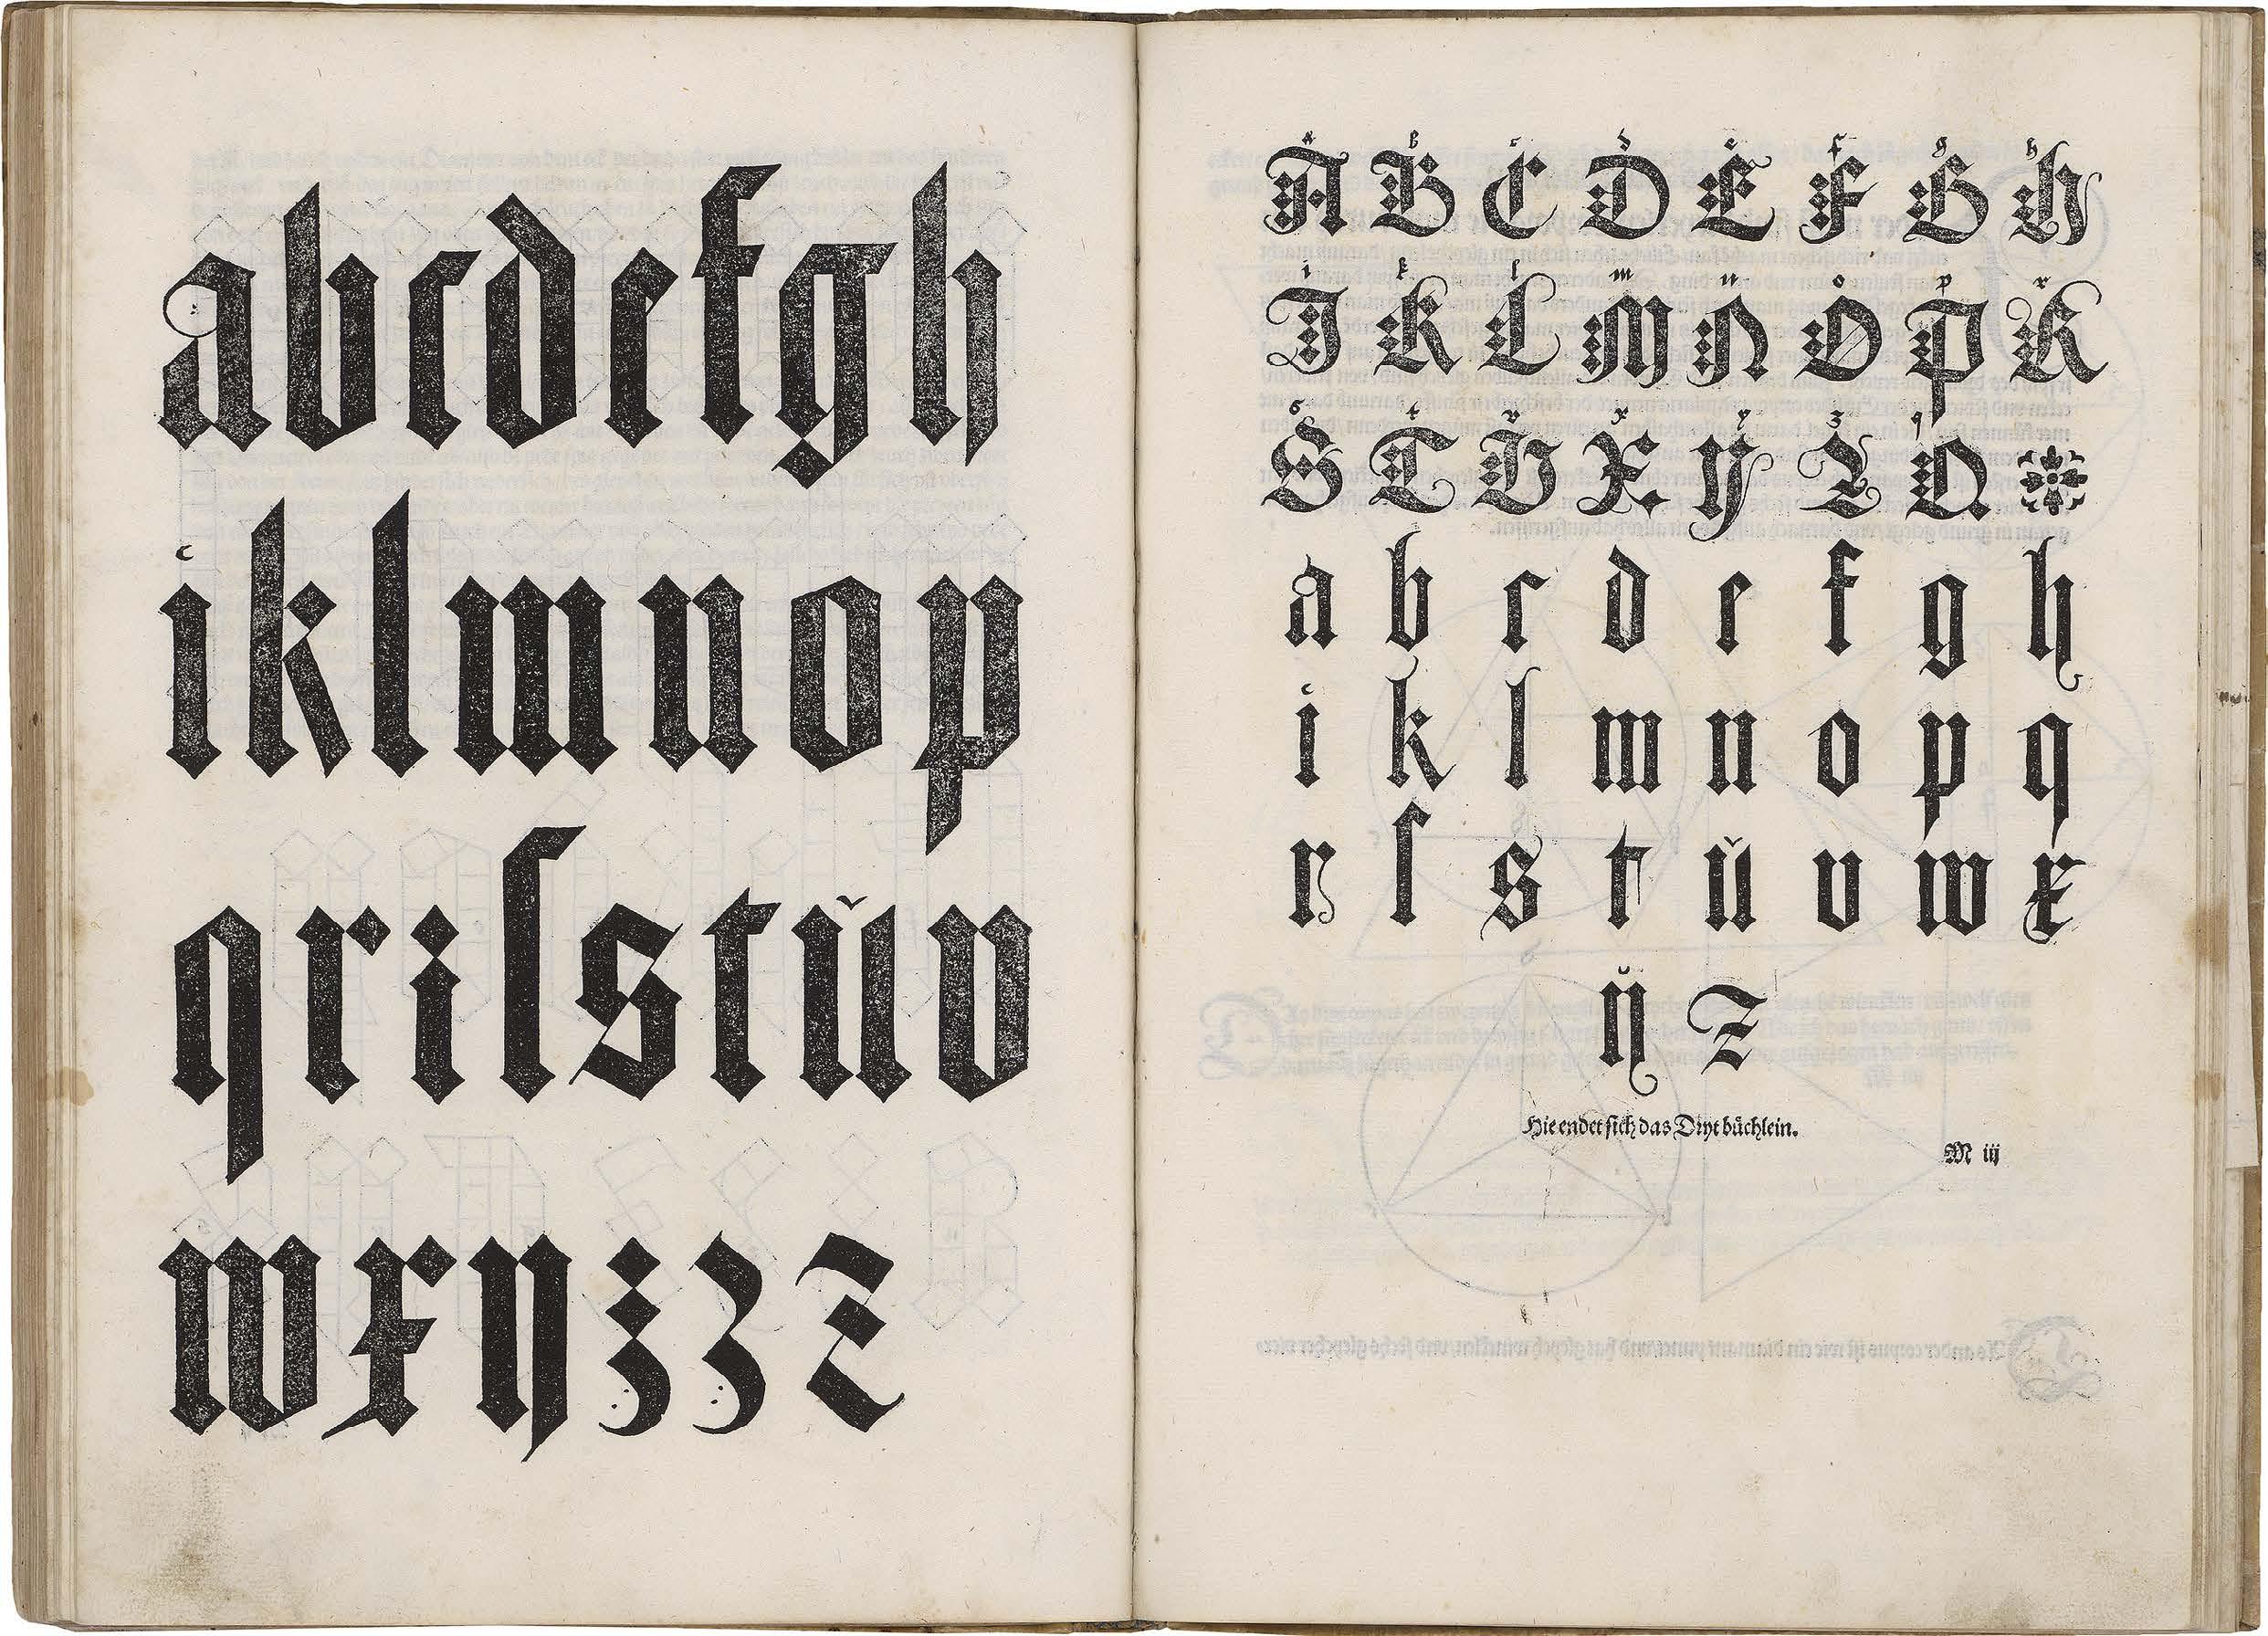 a b c d e f g h
i k l m n o p
q r i ſ s t ŭ v
w x y z z z
a b c d e f g h
A B C D E F G H
i k l m n o p r
I K L M N O P R
s t v x y z q
S T V X Y Z Q
a b c d e f g h
i k l m n o p q
r ſ s t ŭ v w x
ÿ z
Hie endet sich das Dryt büchlein.
M iij